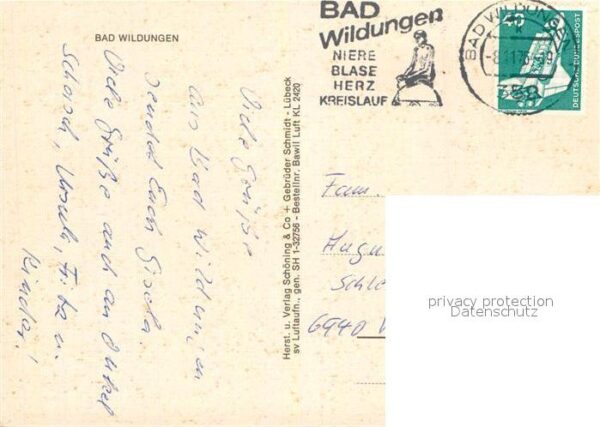 BAD WILDUNGEN
Viele Grüße
aus Bad Wildungen
sendet Euch Gisela.
Viele Grüße auch an Onkel
Schorsch, Ursula, Fritz u.
Kinder!
Herst. u. Verlag Schöning & Co + Gebrüder Schmidt - Lübeck
sv Luftaufn., gen. SH 1-32756 - Bestellnr. Bawil Luft KL 2420
BAD
Wildungen
NIERE
BLASE
HERZ
KREISLAUF
BAD WILDUNGEN
40
DEUTSCHE BUNDESPOST
Fam.
Hugo
Schle
6940 W
privacy protection
Datenschutz